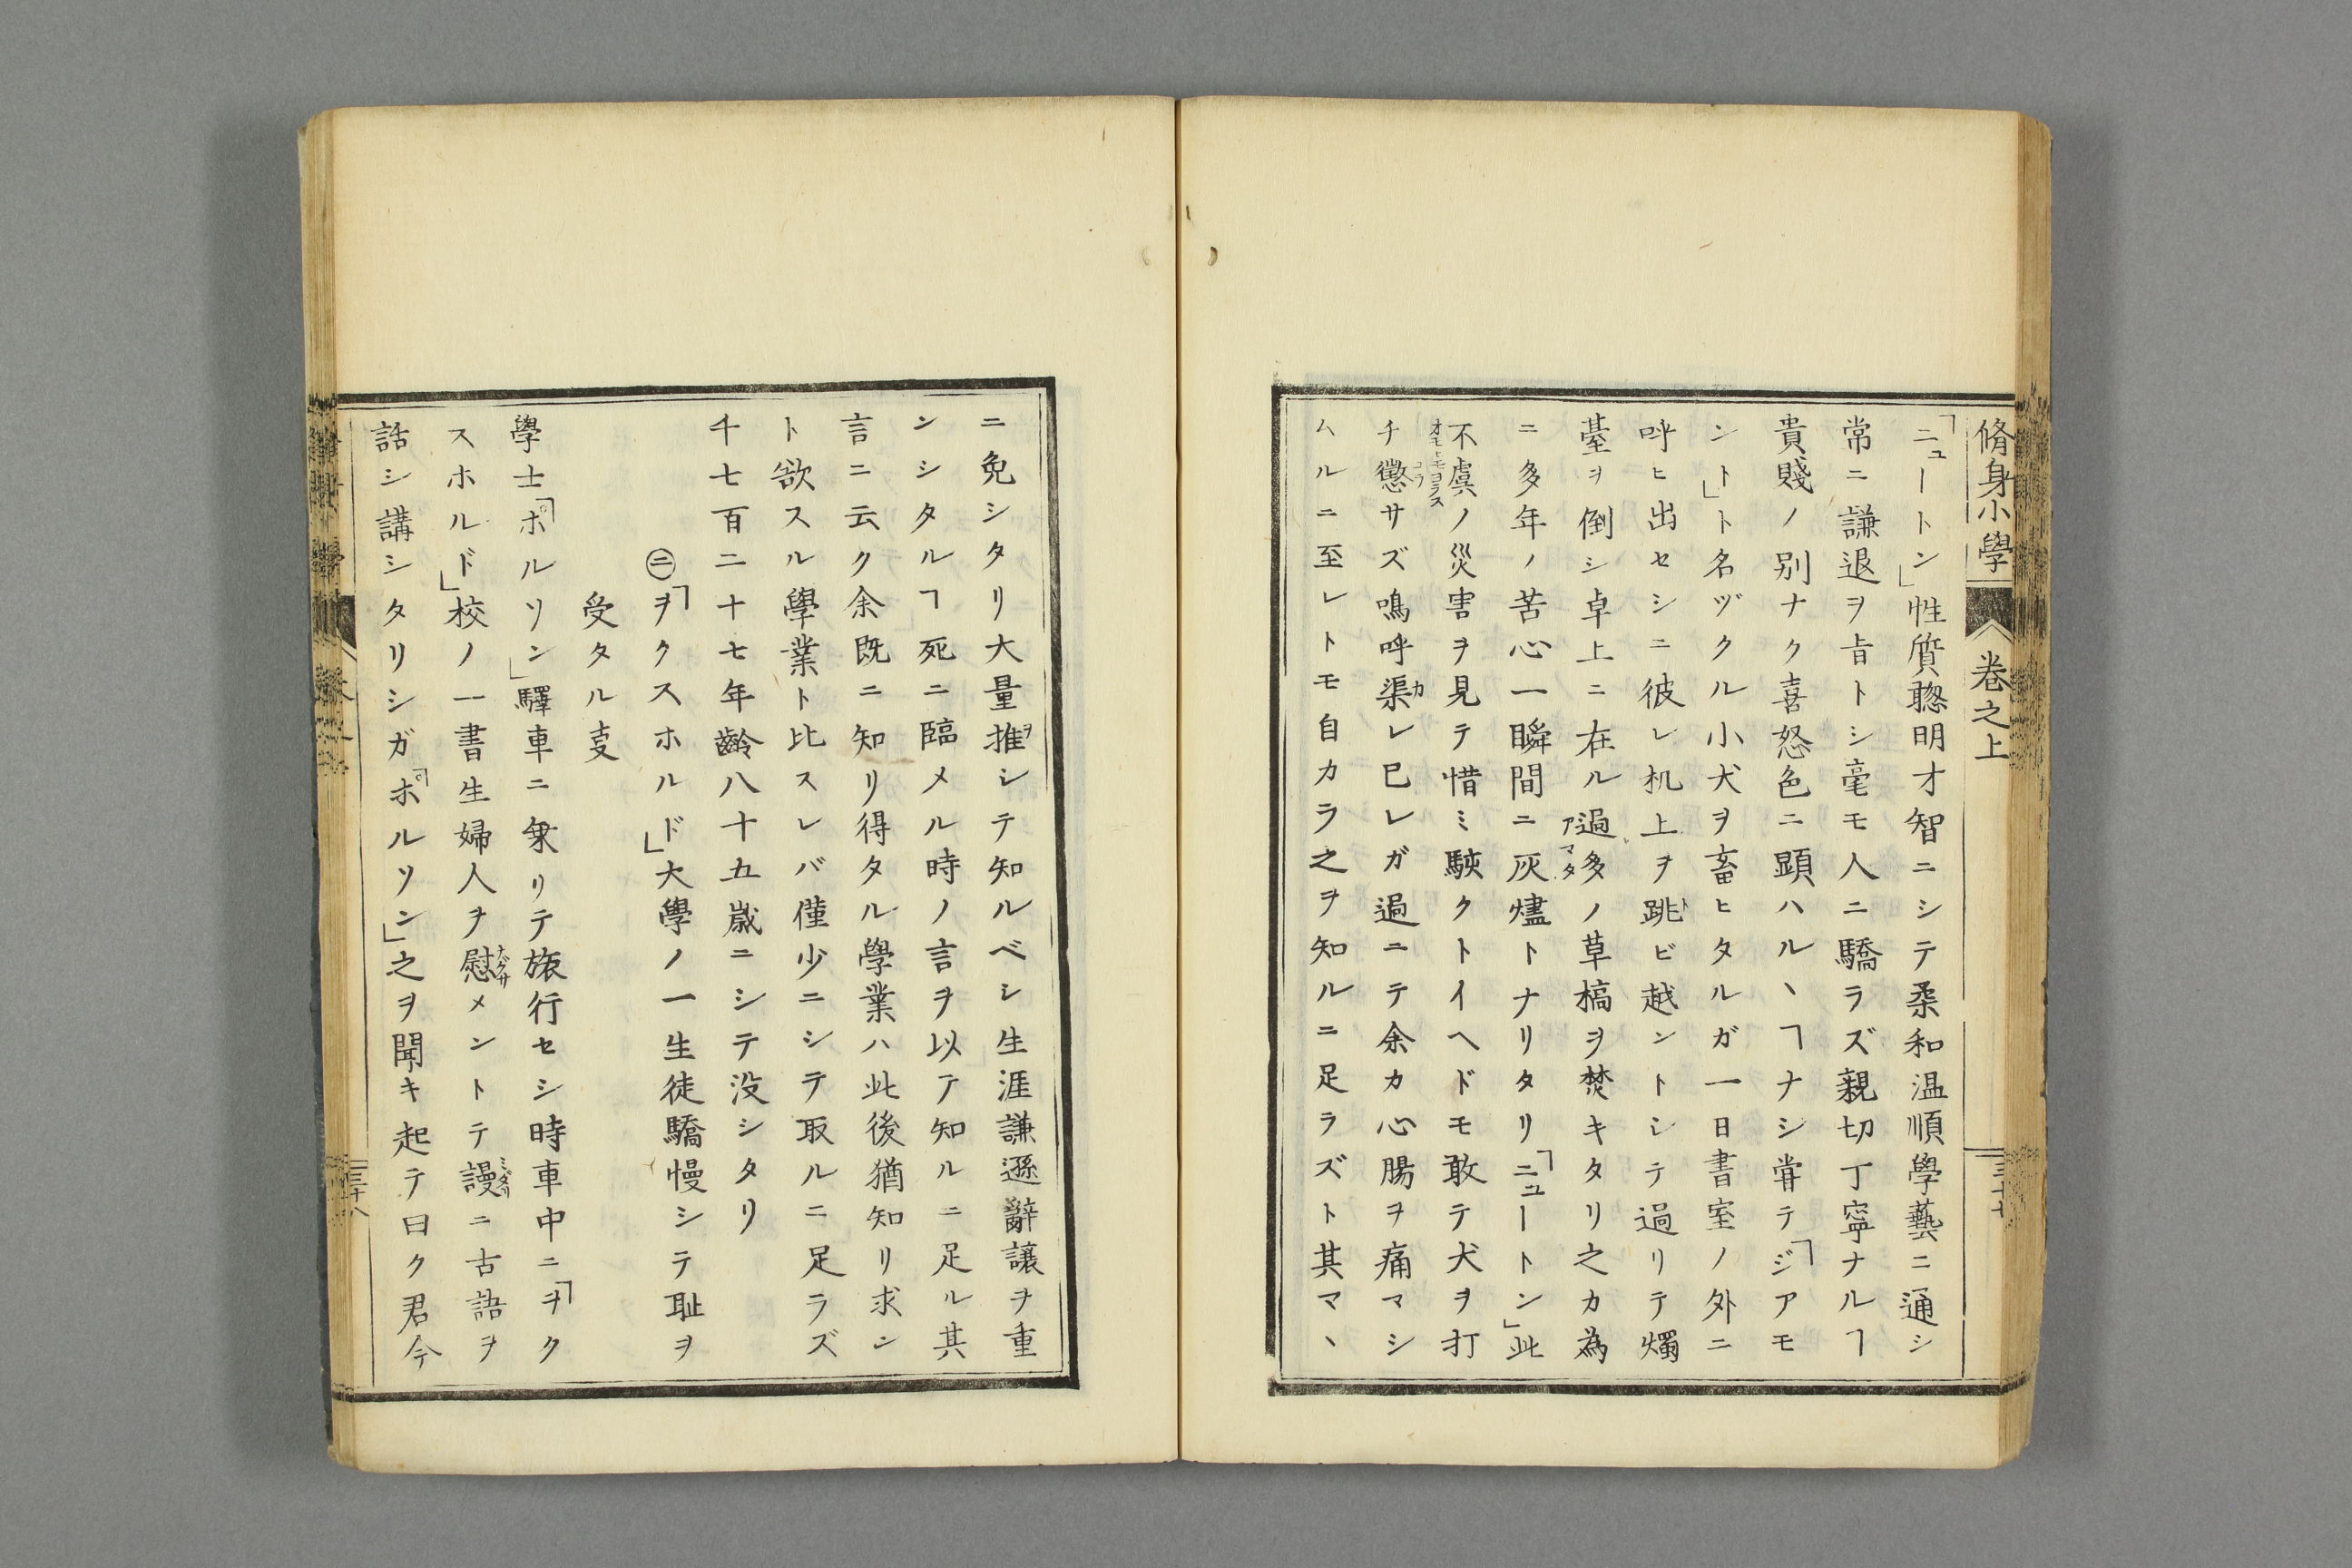 脩身小學 卷之上 三十七
「ニュートン」性質聰明才智ニシテ柔和温順學藝ニ通シ
常ニ謙退ヲ旨トシ毫モ人ニ驕ラズ親切丁寧ナルヿ
貴賤ノ別ナク喜怒色ニ顕ハルヽヿナシ甞テ「ジアモ
ント」ト名ヅクル小犬ヲ畜ヒタルガ一日書室ノ外ニ
呼ヒ出セシニ彼レ机上ヲ跳ビ越ントシテ過リテ燭
䑓ヲ倒シ卓上ニ在ル過多ノ草槁ヲ焚キタリ之カ為
ニ多年ノ苦心一瞬間ニ灰燼トナリタリ「ニュートン」此
不虞ノ災害ヲ見テ惜ミ駚クトイヘドモ敢テ犬ヲ打
チ懲サズ鳴呼渠レ已レガ過ニテ余カ心腸ヲ痛マシ
ムルニ至レトモ自カラ之ヲ知ルニ足ラズト其マヽ
ニ免シタリ大量推シテ知ルベシ生涯謙遜辭讓ヲ重
ンシタルヿ死ニ臨メル時ノ言ヲ以テ知ルニ足ル其
言ニ云ク余既ニ知リ得タル學業ハ此後猶知リ求ン
ト欲スル學業ト比スレバ僅少ニシテ取ルニ足ラズ
千七百二十七年齡八十五歳ニシテ没シタリ
㊁「ヲクスホルド」大學ノ一生徒驕慢シテ耻ヲ
受タル叓
學士「ポルソン」驛車ニ乗リテ旅行セシ時車中ニ「ヲク
スホルド」校ノ一書生婦人ヲ慰メントテ謾ニ古語ヲ
話シ講シタリシガ「ポルソン」之ヲ聞キ起テ曰ク君今